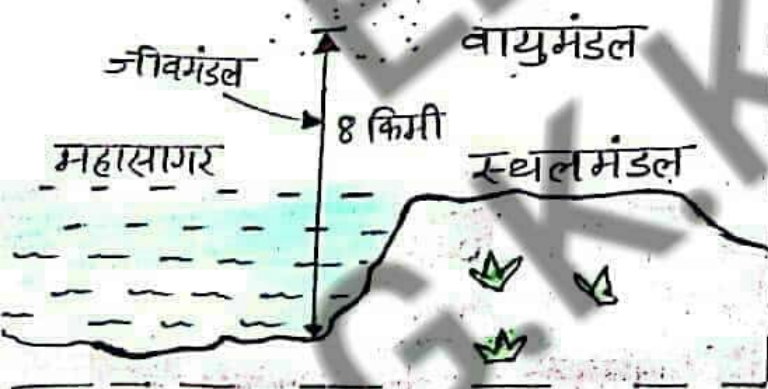 वायुमंडल
जीवमंडल
8 किमी
महासागर
स्थलमंडल